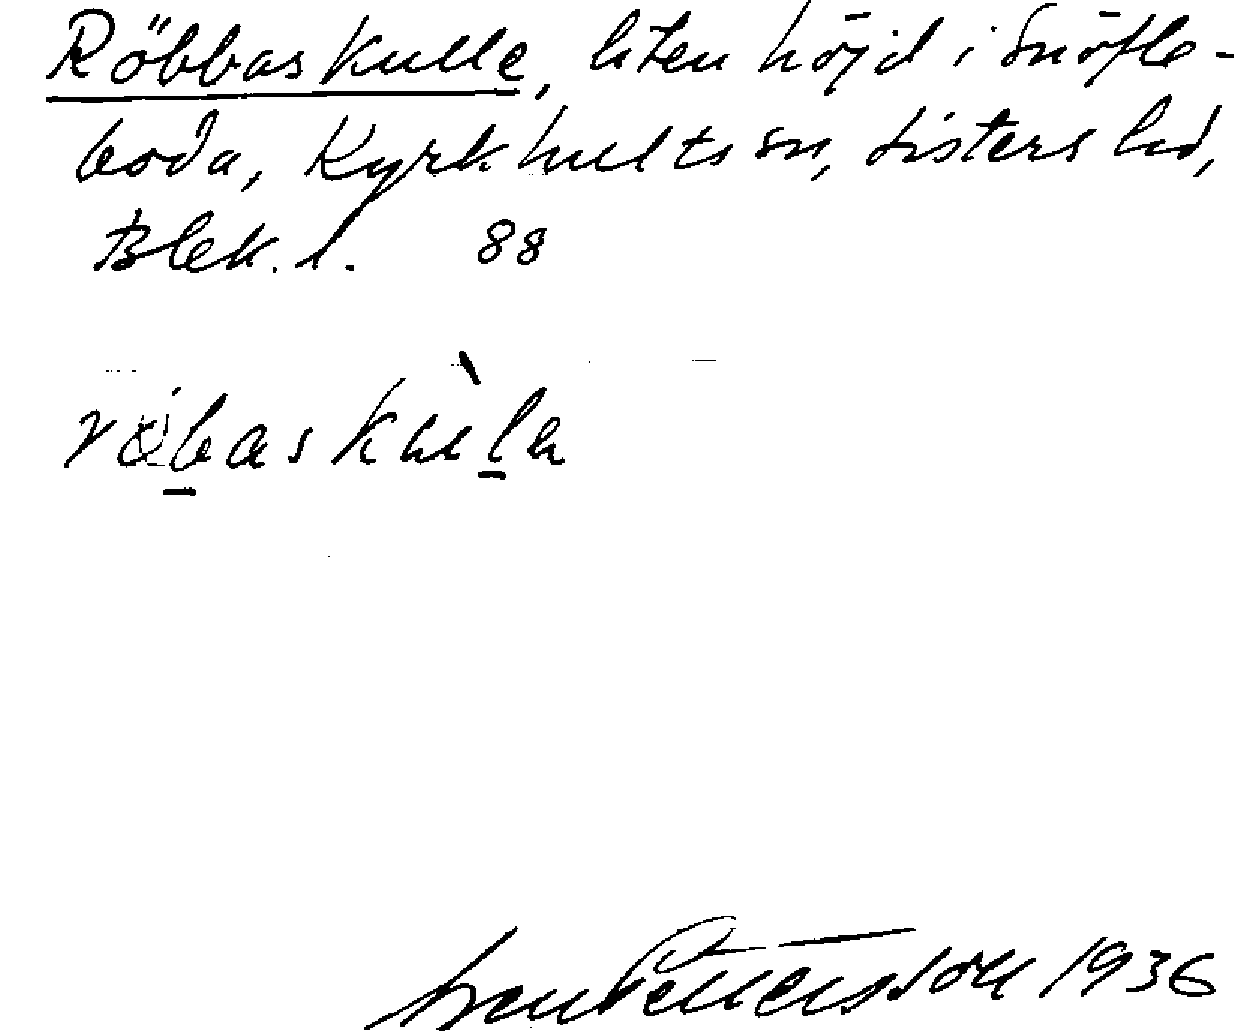 Röbbaskulle, liten höjd i Snöfle-
boda, Kyrkhults sn, Listers hd,
Blek. l. 88
röbaskùla
Sven Pettersson 1936